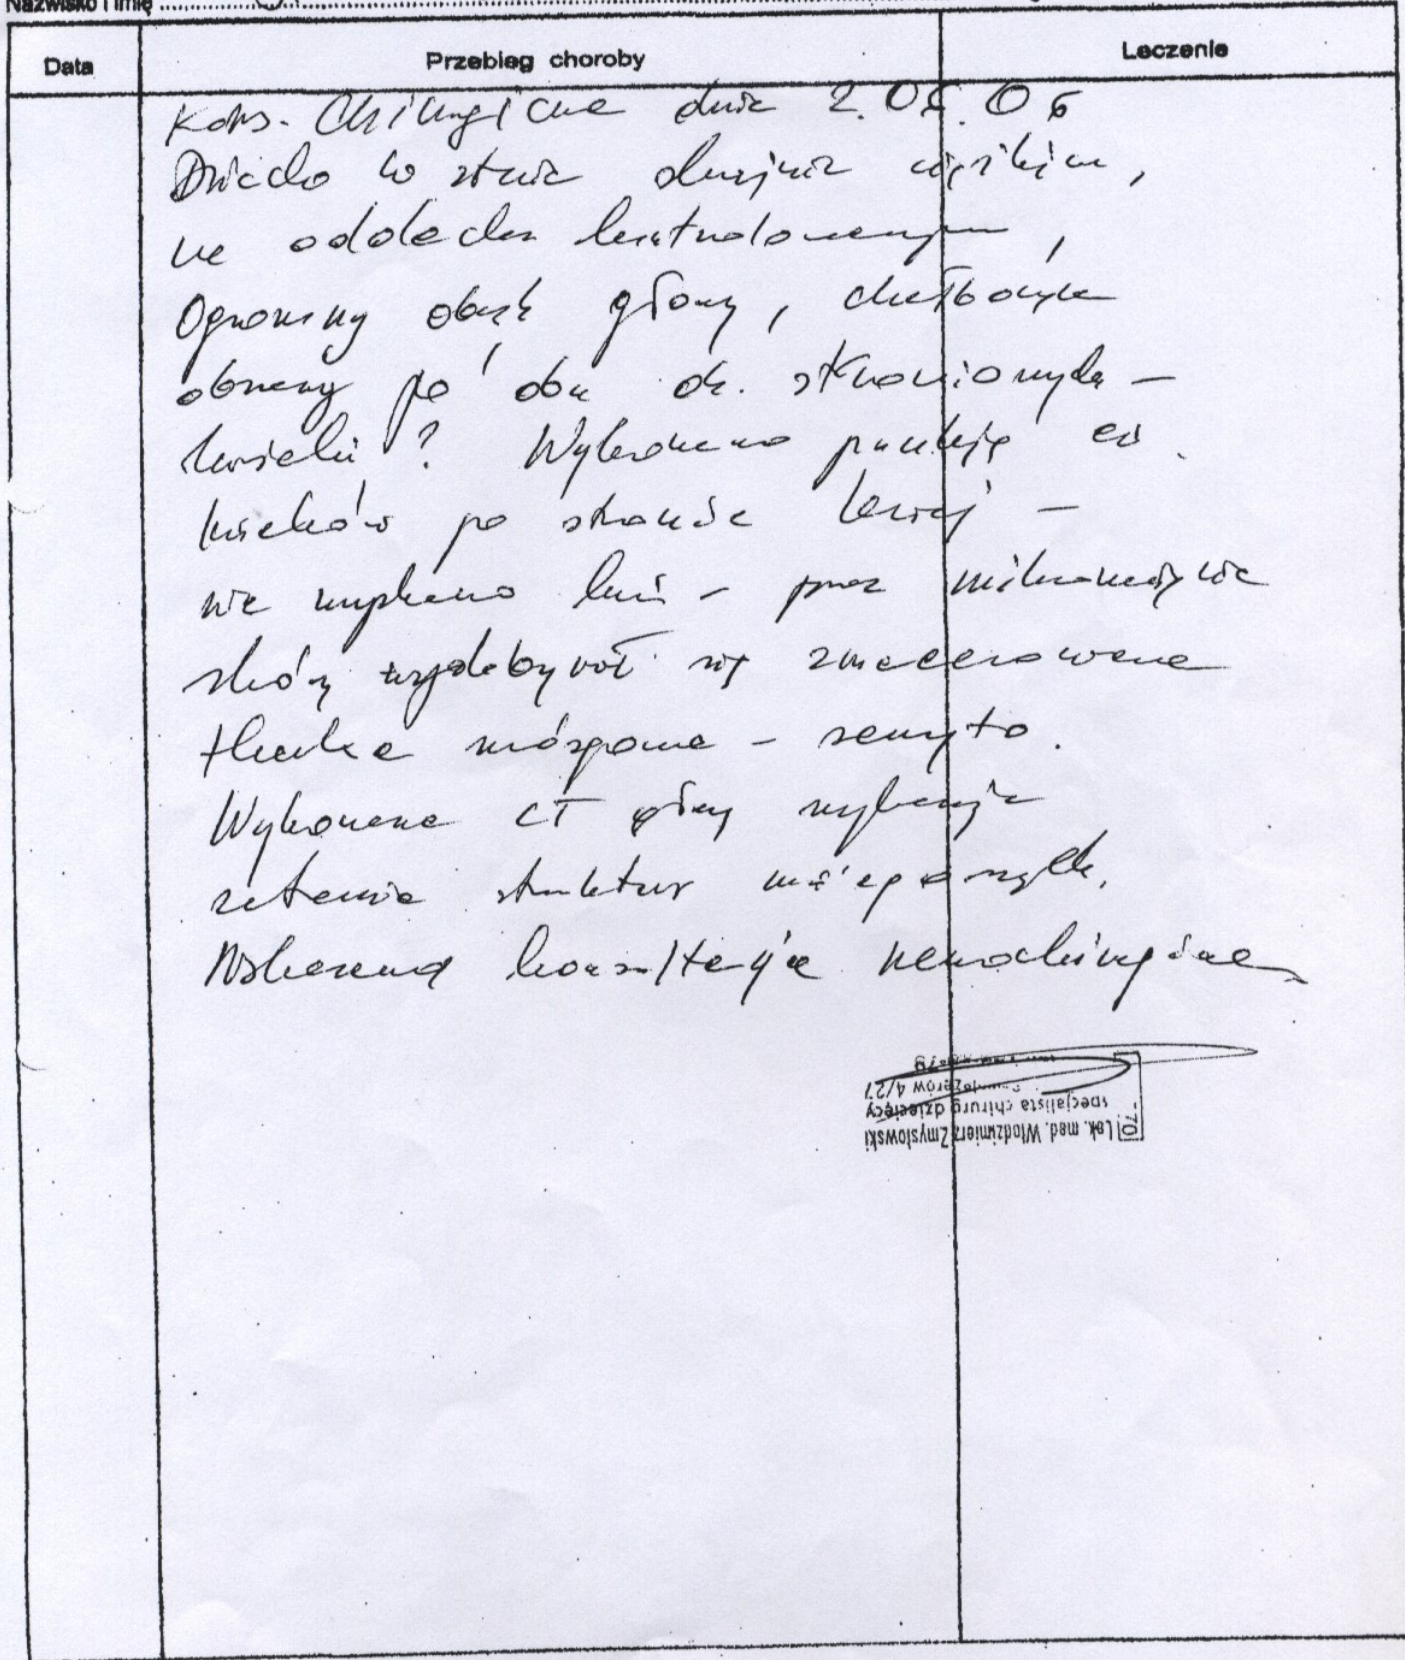 Nazwisko i imię
Data Przebieg choroby Leczenie
Kons. Chirurgiczna dnia 2.06.06
Dziecko w stanie skrajnie ciężkim,
na oddechu kontrolowanym,
Ogromny obrzęk głowy, chełbocące
obszary po obu ok. skroniowych –
krwiaki? Wykonano punkcję
krwiaków po stronie lewej –
nie uzyskano krwi – przez
skóry wydobywał się zmacerowana
tkanka mózgowa – zeszyto.
Wykonane CT głowy wykazuje
zatarcie struktur mózgowych.
Wskazana konsultacja neurochirurgiczna
70 Lek. med. Włodzimierz Zmysłowski
specjalista chirurg dziecięcy
4/27